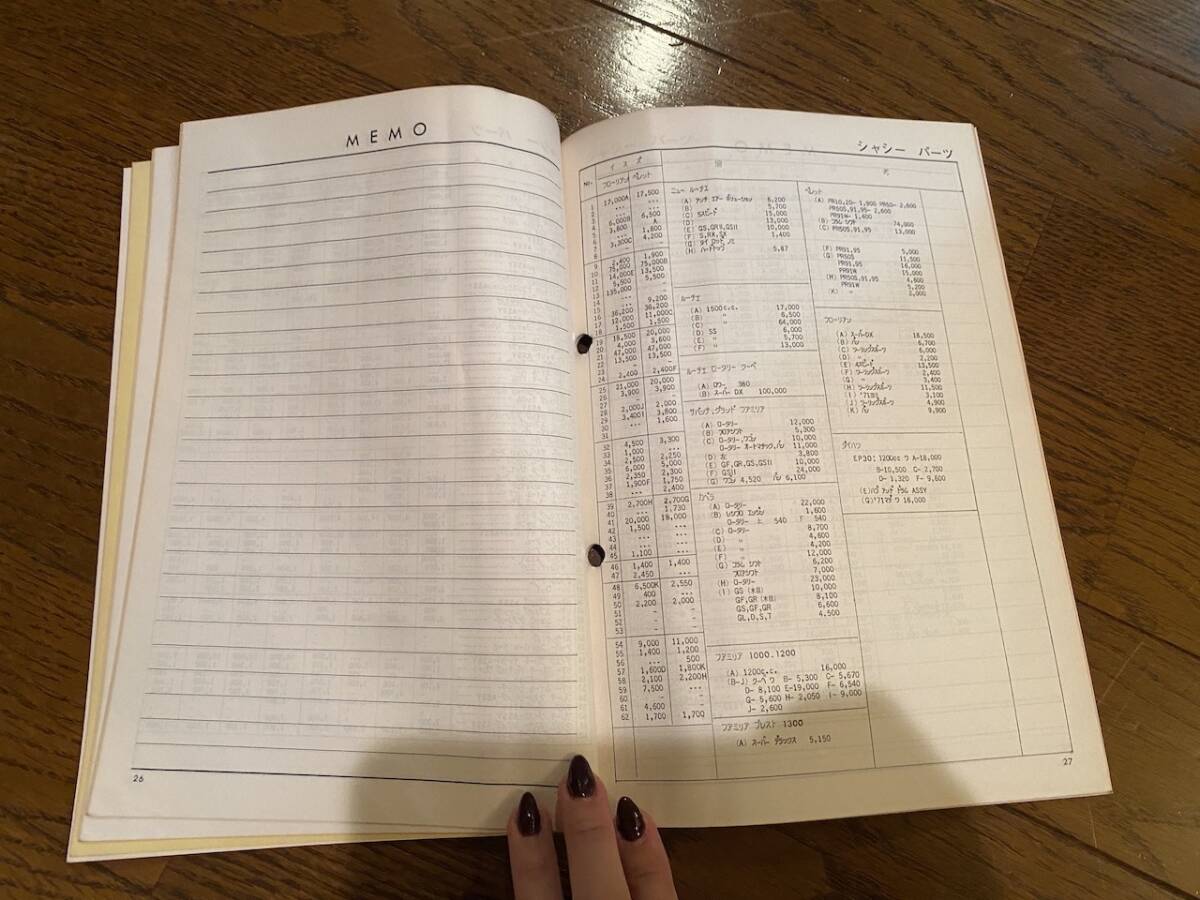 MEMO
26
シャシー パーツ
No.
イスズ
フローリアン ベレット
1 17,000A 17,500
2 --- ---
3 --- 6,500
4 6,000B A
5 3,800 1,800
6 --- 4,200
7 3,300C
8
9 2,400 1,900
10 75,000 75,000B
11 14,000E 13,500
12 5,500 5,500
13 135,000
14 --- -
15 --- 9,200
16 36,200 36,200
17 12,000 11,000C
18 1,500 1,500
19 18,500 20,000
20 4,000 3,600
21 47,000 47,000
22 13,500 13,500
23 - -
24 2,400 2,400F
25 21,000 20,000
26 3,900 3,900
27 - -
28 2,000J 2,000
29 3,400I 3,800
30 --- 1,600
31
32 4,500 3,300
33 1,000 ---
34 2,500 2,250
35 6,000 5,000
36 2,350 2,300
37 1,900F 1,750
38 --- 2,400
39 2,700H 2,700G
40 --- 1,730
41 20,000 18,000
42 1,500 ---
43 --- ---
44 --- ---
45 1,100 ---
46 1,400 1,400
47 2,450 ---
48 6,500K 2,550
49 400 ---
50 2,200 2,000
51 - -
52 - -
53 - -
54 9,000 11,000
55 1,400 1,200
56 --- 500
57 1,600D 1,800K
58 2,100 2,200H
59 7,500 ---
60 - -
61 4,600 -
62 1,700 1,700
ニュー ルーチェ
(A) アンチ エアー ポリューション 6,200
(B) 5,700
(C) 5スピード 15,000
(D) 13,000
(E) GS,GRⅡ,GSII 10,000
(F) S,RX,SX 1,400
(G)
(H) ハードトップ 5,87
ルーチェ
(A) 1500c.c. 17,000
(B) 〃 6,500
(C) 〃 64,000
(D) SS 6,000
(E) 〃 5,700
(F) 〃 13,000
ルーチェ ロータリー クーペ
(A) ロワー 380
(B) スーパー DX 100,000
サバンナ,グランド ファミリア
(A) ロータリー 12,000
(B) フロアシフト 5,300
(C) ロータリー,ワゴン 10,000
ロータリー オートマチック,バン 11,000
(D) 左 3,800
(E) GF,GR,GS,GSII 10,000
(F) GSII 24,000
(G) ワゴン 4,520 バン 6,100
カペラ
(A) ロータリー 22,000
(B) レシプロ エンジン 1,600
ロータリー 上 540 F 540
(C) ロータリー 8,700
(D) 〃 4,600
(E) 〃 4,200
(F) 〃 12,000
(G) コラム シフト 6,200
フロアシフト 7,000
(H) ロータリー 23,000
(I) GS (木目) 10,000
GF,GR (木目) 8,100
GS,GF,GR 6,600
GL,D,S,T 4,500
ファミリア 1000_1200
(A) 1200c.c. 16,000
(B-J) クーペ ワ B- 5,300 C- 5,670
D- 8,100 E-19,000 F- 6,540
G- 5,600 H- 2,050 I- 9,000
J- 2,600
ファミリア プレスト 1300
(A) スーパー デラックス 5,150
ベレット
(A) PR10,20- 1,900 PR50- 2,600
PR50S,91.95- 2,600
PR91W- 1,400
(B) コラム シフト 74,000
(C) PR50S,91.95 13,000
(F) PR91.95 5,000
(G) PR50S 11,500
PR91.95 16,000
PR91W 15,000
(H) PR50S,91.95 4,600
PR91W 5,200
(K) 〃 2,000
フローリアン
(A) スーパーDX 18,500
(B) バン 6,700
(C) ツーリングスポーツ 6,000
(D) 〃 2,200
(E) 4スピード 13,500
(F) ツーリングスポーツ 2,400
(G) 〃 3,400
(H) ツーリングスポーツ 11,500
(I) '71ヨリ 3,100
(J) ツーリングスポーツ 4,900
(K) バン 9,900
ダイハツ
EP30: 1200cc ワ A-18,000
B-10,500 C- 2,700
D- 1,320 F- 9,600
(E)ハブ アンド ドラム ASSY
(G)'71マデ ワ 18,000
27